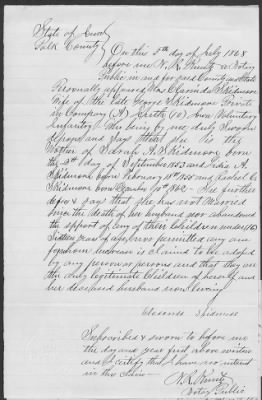 State of Iowa
Polk County
On this 5th day of July 1868
before me W. R. Kuntz a Notary
Public in and for said County and State
Personally appeared Mrs Clarinda Skidmore
Wife of the late George Skidmore Private
in Company (A) (10) Iowa Voluntary
Infantry Who being by me duly Sworn
deposes and says that she is the
Mother of Sarah Skidmore born
the 2d day of September 1853 and A.
Skidmore born February 15th 1855 and Rachel C.
Skidmore born 19th 1862 - She further
depos & says that she has not Married
since the death of her husband nor abandoned
the support of any of their Children under (16)
Sixteen years of age nor permitted any one of
whom increase is claimed to be adopted
by any person or persons and that they are
the only legitimate Children of herself and
her deceased husband now living
Clarinda Skidmore
Subscribed & sworn to before me
the day and year first above written
and I certify that I have no interest
in this Claim -
W. R. Kuntz
Notary Public